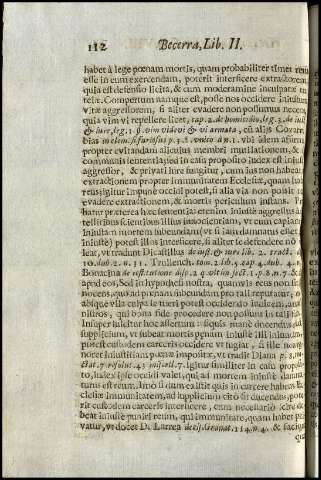 112 Becerra, Lib. II.
habet à lege pœnam mortis, quam probabiliter timet
esse in eum exercendam, poterit interficere extractorem,
quia est defensio licita, & cum moderamine inculpatæ
telæ. Compertum namque est, posse nos occidere iniustum
vitæ aggressorem, si aliter evadere non possumus
quia vim vi repellere licet, cap. 2. de homicidio, leg. 3. de iust.
& iure, leg. 1. §. vim vi de vi & vi armata, cũ alijs
in Clem. si furiosus p. 3. §. unico à n. 1. ubi idem
propter evitandam alicuius membri mutilationem, &
communis sententia; sed in casu proposito iudex est iniustus
aggressor, & privati iure fungitur, cum ius non habeat
extractionem propter immunitatem Ecclesiæ, quam
reus; igitur impunè occidi potest, si alia via non possit
evadere extractionem, & mortis periculum instans.
betur præterea hæc sententia; etenim iniustè aggressus à
tellitibus scientibus illius innocentiam, vt eum capiant
iniustam mortem subeundam (vt si iam damnatus esset
iniustè) potest illos interficere, si aliter se defendere
leat, vt tradunt Dicastillus de iust. & iure lib. 2. tract.
10. dub. 2. n. 31. Trullench. tom. 2. lib. 5. cap. 4. dub.
Bonacina de restitutione disp. 2. q. vlt. in sect. 1. p. 8. n. 7. &
apud eos. Sed in hypothesi nostra, quamvis reus non sit
nocens, quoad pœnam subeundam pro tali reputatur,
absque vlla culpa se tueri potest occidendo
nistros, qui bona fide procedere non possunt in tali
Insuper fulcitur hoc assertum: aliquis manè ducendus
supplicium, vt subeat mortis pœnam iniustè illi
potest custodem carceris occidere vt fugiat, si ille
noret iniustitiam pœnæ impositæ, vt tradit Diana p. 8.
tract. 7. resolut. 45. in fine: igitur similiter in casu
sito, iudex ipse occidi valet, qui ad mortem iniustè
turus est reum. Imò si cum existit quis in carcere habens
clesiæ immunitatem, ad supplicium citò sit ducendus,
rit custodem carceris interficere, cum necessariò
debeat iniustè reum, qui immunitate, quam habet
vatur, vt docet D. Larrea decis. Granat. 114. n. 4. &